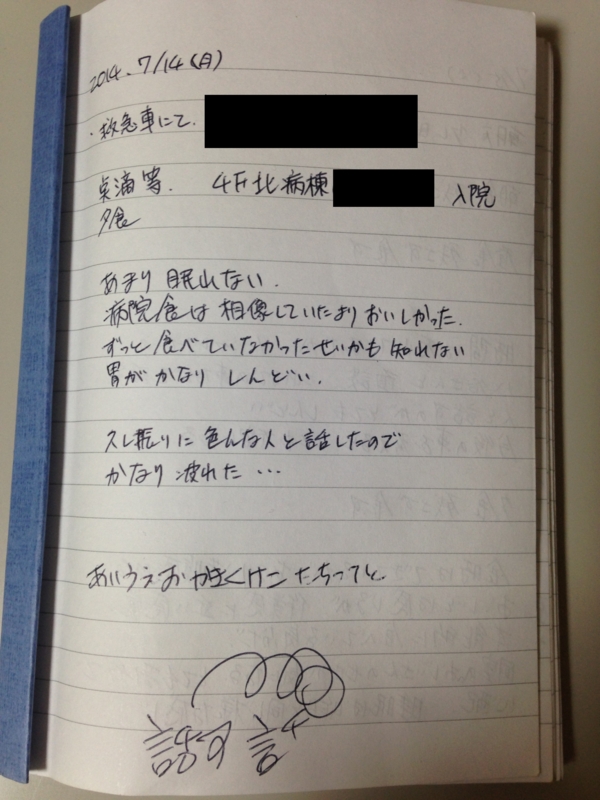 2014.7/14(月)
・救急車にて.
点滴等. 4F北病棟 入院
夕食
あまり眠れない.
病院食は相像していたよりおいしかった.
ずっと食べていなかったせいかも知れない
胃がかなりしんどい.
久し振りに色んな人と話したので
かなり疲れた…
あいうえおかきくけこたちつてと
話す